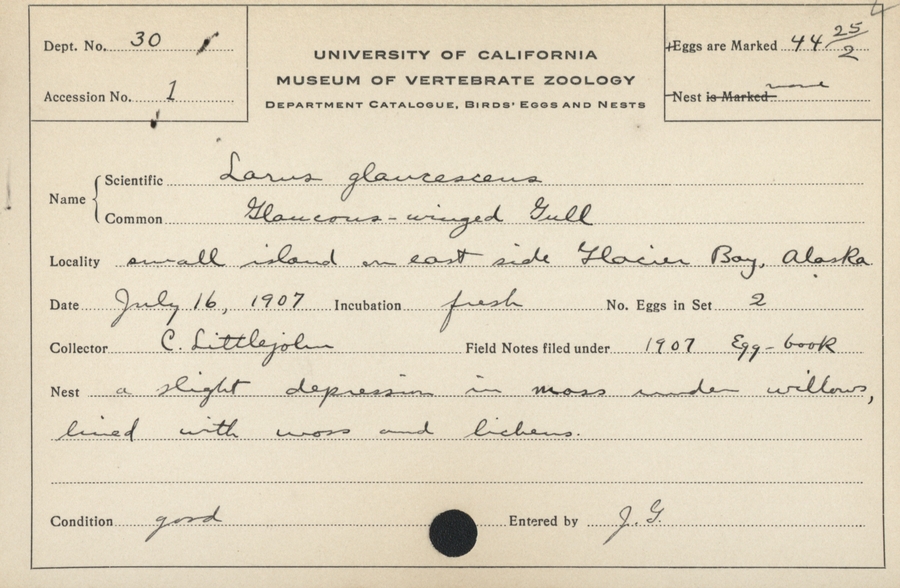 4
Dept. No. 30
Accession No. 1
UNIVERSITY OF CALIFORNIA
MUSEUM OF VERTEBRATE ZOOLOGY
DEPARTMENT CATALOGUE, BIRDS' EGGS AND NESTS
Eggs are Marked 44 25/2
Nest is Marked none
Name
Scientific Larus glaucescens
Common Glaucous-winged Gull
Locality small island on east side Glacier Bay, Alaska
Date July 16, 1907 Incubation fresh No. Eggs in Set 2
Collector C. Littlejohn Field Notes filed under 1907 Egg-book
Nest a slight depression in moss under willows,
lined with moss and lichens.
Condition good Entered by J. G.